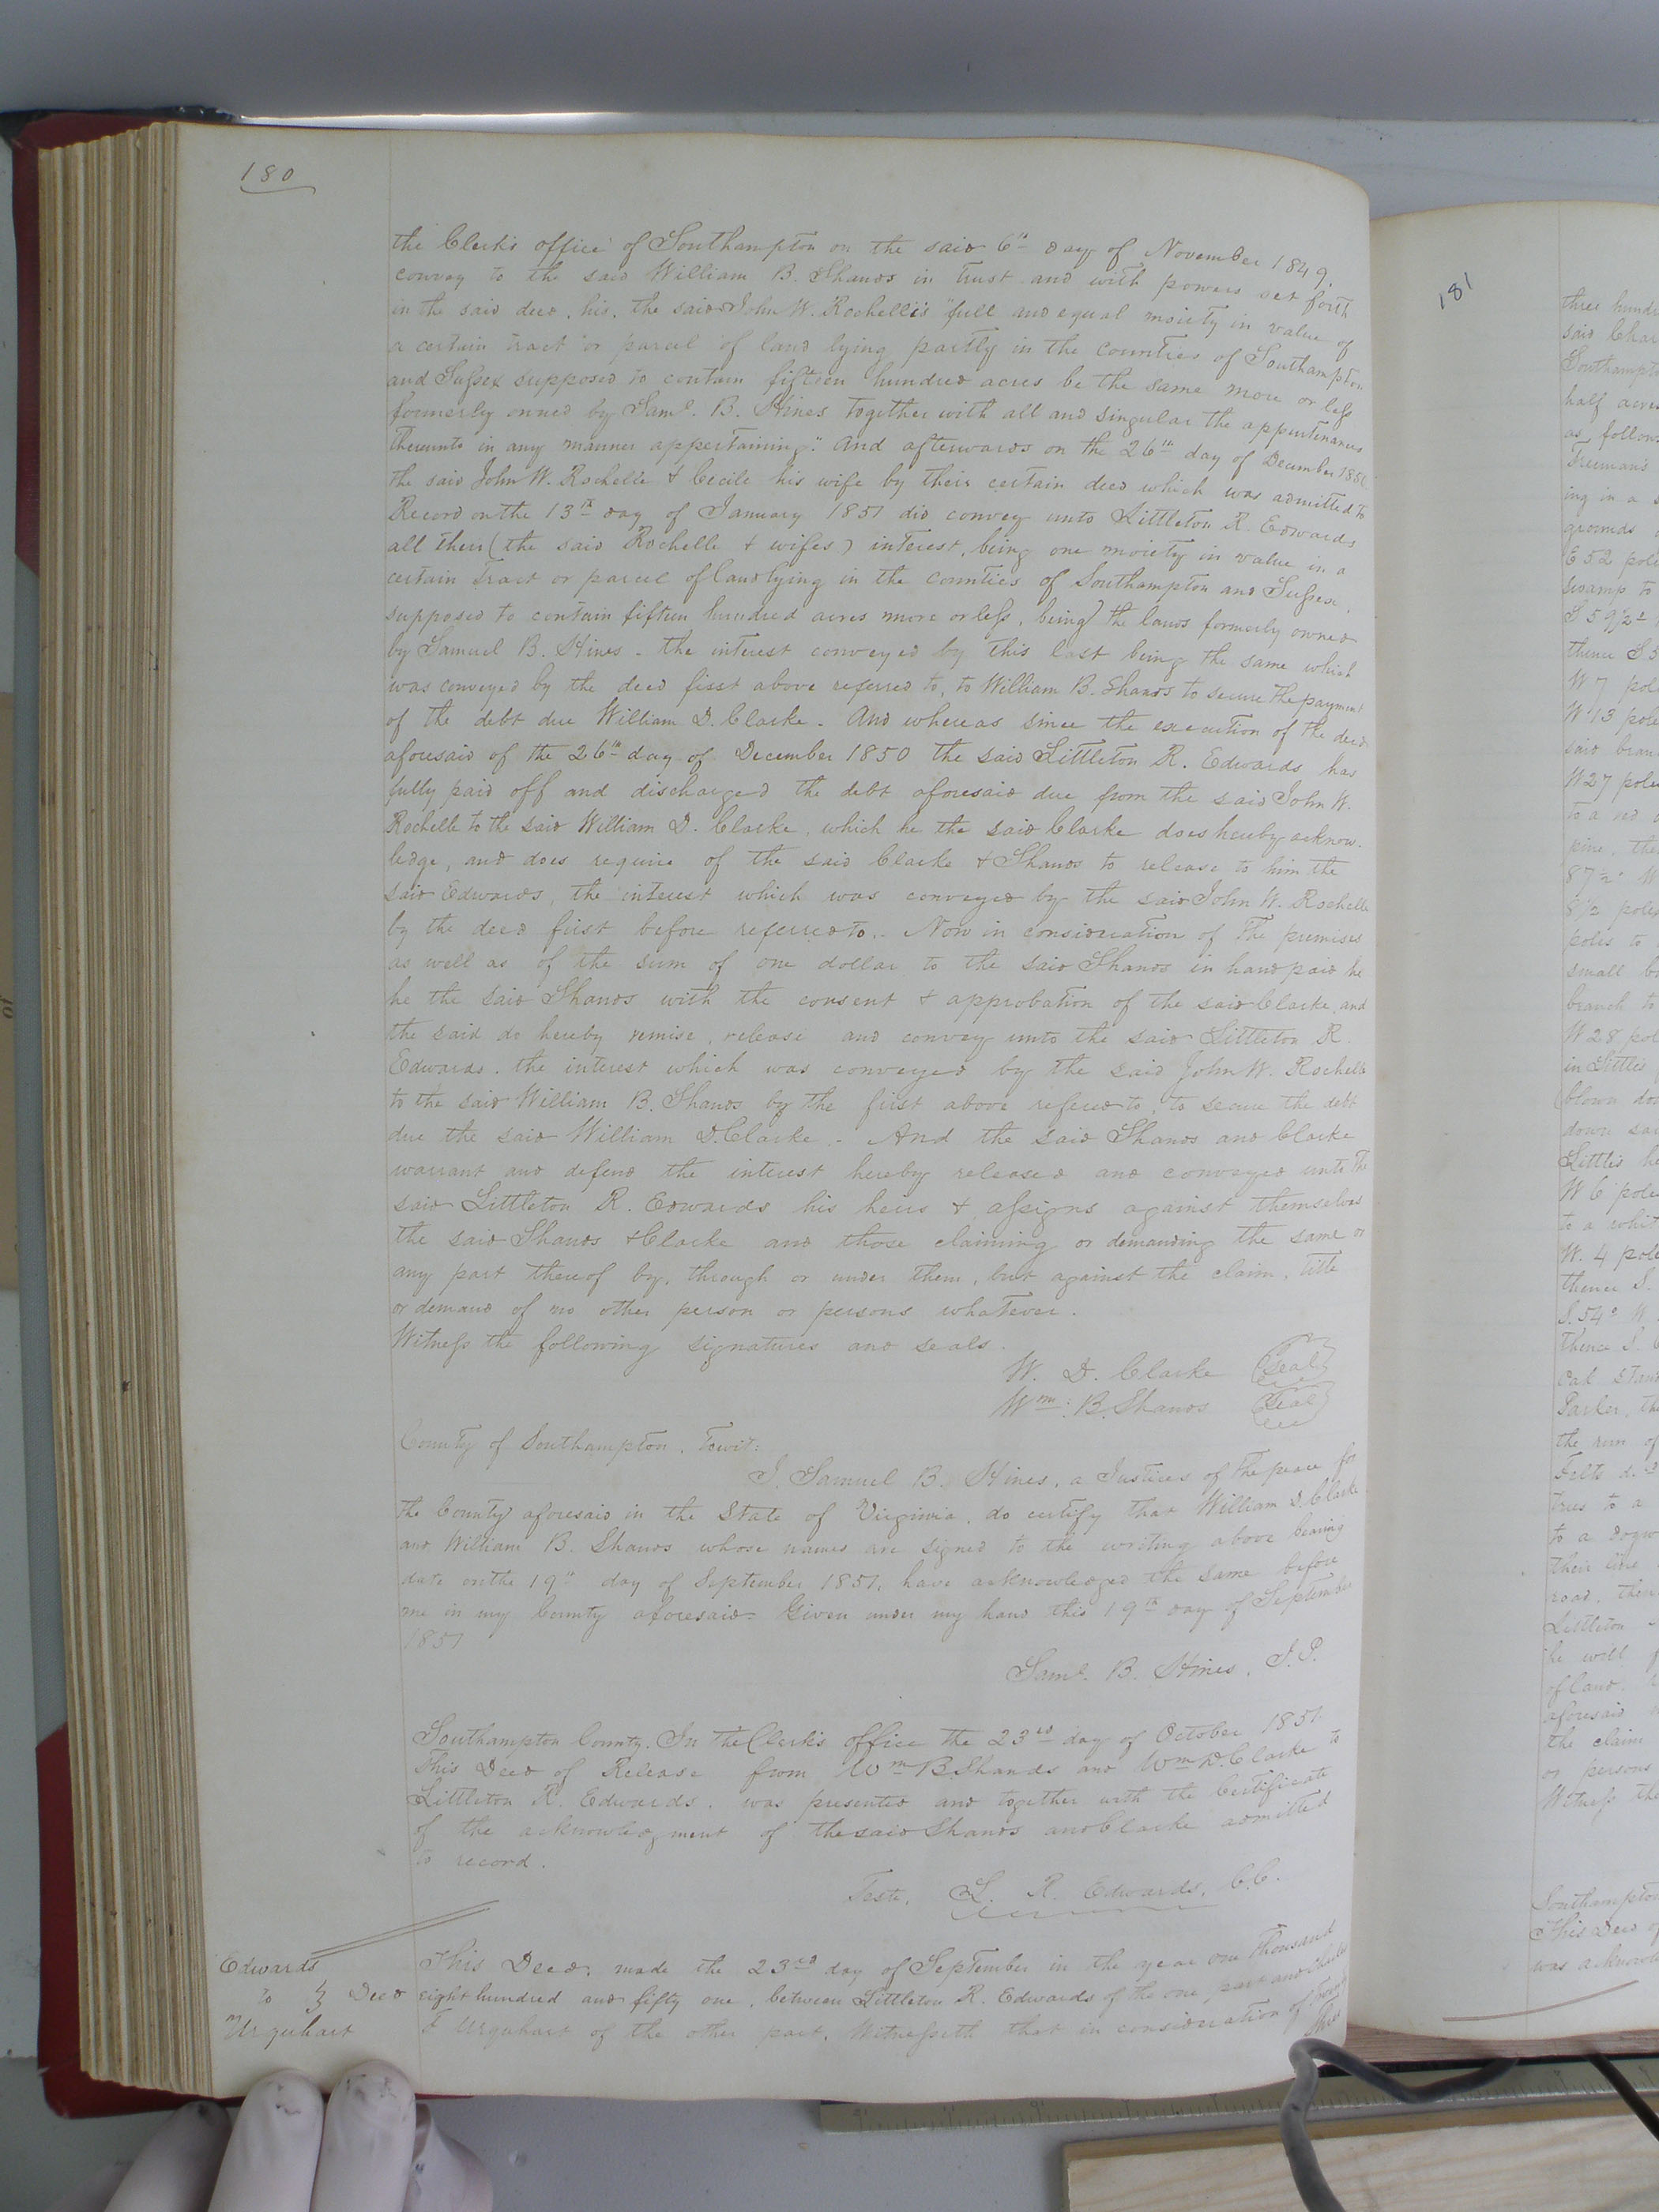 180
the Clerk's office of Southampton on the said 6th day of November 1849,
convey to the said William B. Shands in trust and with powers set forth
in the said deed, his, the said John W. Rochelle's "full and equal moiety in value of
a certain tract or parcel of land lying partly in the counties of Southampton
and Sussex supposed to contain fifteen hundred acres be the same more or less
formerly owned by Saml. B. Hines together with all and singular the appurtenances
thereunto in any manner appertaining." And afterwards on the 26th day of December 1850
the said John W. Rochelle & Cecile his wife by their certain deed which was admitted to
Record on the 13th day of January 1851 did convey unto Littleton R. Edwards
all their (the said Rochelle & wifes) interest, being one moiety in value in a
certain Tract or parcel of land lying in the counties of Southampton and Sussex,
supposed to contain fifteen hundred acres more or less, being the lands formerly owned
by Samuel B. Hines - the interest conveyed by this last being the same which
was conveyed by the deed first above referred to, to William B. Shands to secure the payment
of the debt due William D. Clarke. And whereas since the execution of the deed
aforesaid of the 26th day of December 1850 the said Littleton R. Edwards has
fully paid off and discharged the debt aforesaid due from the said John W.
Rochelle to the said William D. Clarke, which he the said Clarke does hereby acknow-
ledge, and does require of the said Clarke & Shands to release to him the
said Edwards, the interest which was conveyed by the said John W. Rochelle
by the deed first before referred to.. Now in consideration of the premises
as well as of the sum of one dollar to the said Shands in hand paid he
he the said Shands with the consent & approbation of the said Clarke, and
the said do hereby remise, release and convey unto the said Littleton R.
Edwards. the interest which was conveyed by the said John W. Rochelle
to the said William B. Shands by the first above refered to, to secure the debt
due the said William D. Clarke. - And the said Shands and Clarke
warrant and defend the interest hereby released and conveyed unto the
said Littleton R. Edwards his heirs & assigns against themselves
the said Shands & Clarke and those claiming or demanding the same or
any part thereof by, through or under them, but against the claim, title
or demand of no other person or persons whatever.
Witness the following signatures and seals.
W. D. Clarke Seal
Wm. B. Shands Seal
County of Southampton, Towit:
I, Samuel B. Hines, a Justices of the peace for
the County aforesaid in the State of Virginia, do certify that William D. Clarke
and William B. Shands whose names are signed to the writing above bearing
date on the 19th day of September 1851, have acknowledged the same before
me in my County aforesaid - Given under my hand this 19th day of September
1851
Saml. B. Hines, J.P.
Southampton County. In the Clerk's office the 23rd day of October 1851
This Deed of Release from Wm B Shands and Wm D. Clarke to
Littleton R. Edwards. was presented and together with the Certificate
of the acknowledgment of the said Shands and Clarke admitted
to record.
Teste, L. R. Edwards, C.C.
Edwards
to } Deed
Urquhart
This Deed, made the 23rd day of September in the year one thousand
eight hundred and fifty one, between Littleton R. Edwards of the one part and Charles
F Urquhart of the other part, Witnesseth that in consideration of
181
three hund
said Char
Southampto
half acre
as follow
Freeman's
ing in a
grounds
E 52 pole
swamp to
S 59 1/2°
thence S 5
W 7 pole
W. 13 pole
said bran
W 27 pole
to a red
pine, the
87 1/2° W
8 1/2 poles
poles to
small b
branch to
W 28 pol
in Littles
(blown do
down sai
Littles he
W 6 poles
to a whit
W. 4 pole
thence S.
S. 54° W.
thence S.
oak stan
Parker, th
the run of
Felts
tres to a
to a dogw
their line
road, then
Littleton
he will
of land.
aforesaid
the claim
or persons
Witness the
Southampton
This Deed of
was acknowl